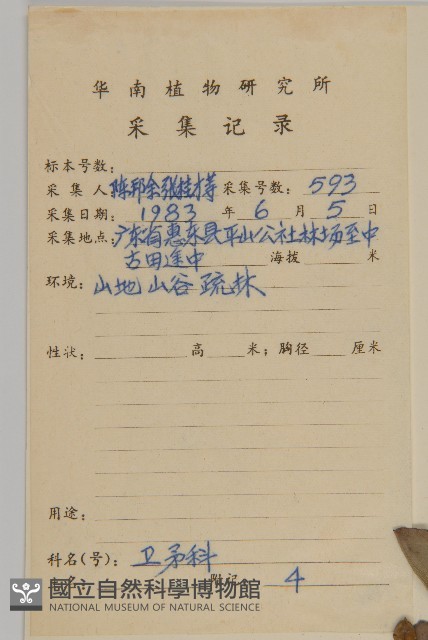 华南植物研究所
采集记录
标本号数：
采集人 陈邦余张桂才等 采集号数： 593
采集日期： 1983 年 6 月 5 日
采集地点： 广东省惠东县平山公社林场至中
古田途中 海拔 米
环境： 山地山谷疏林
性状： 高 米；胸径 厘米
用途：
科名（号）： 卫矛科
名 附记 4
國立自然科學博物館
NATIONAL MUSEUM OF NATURAL SCIENCE